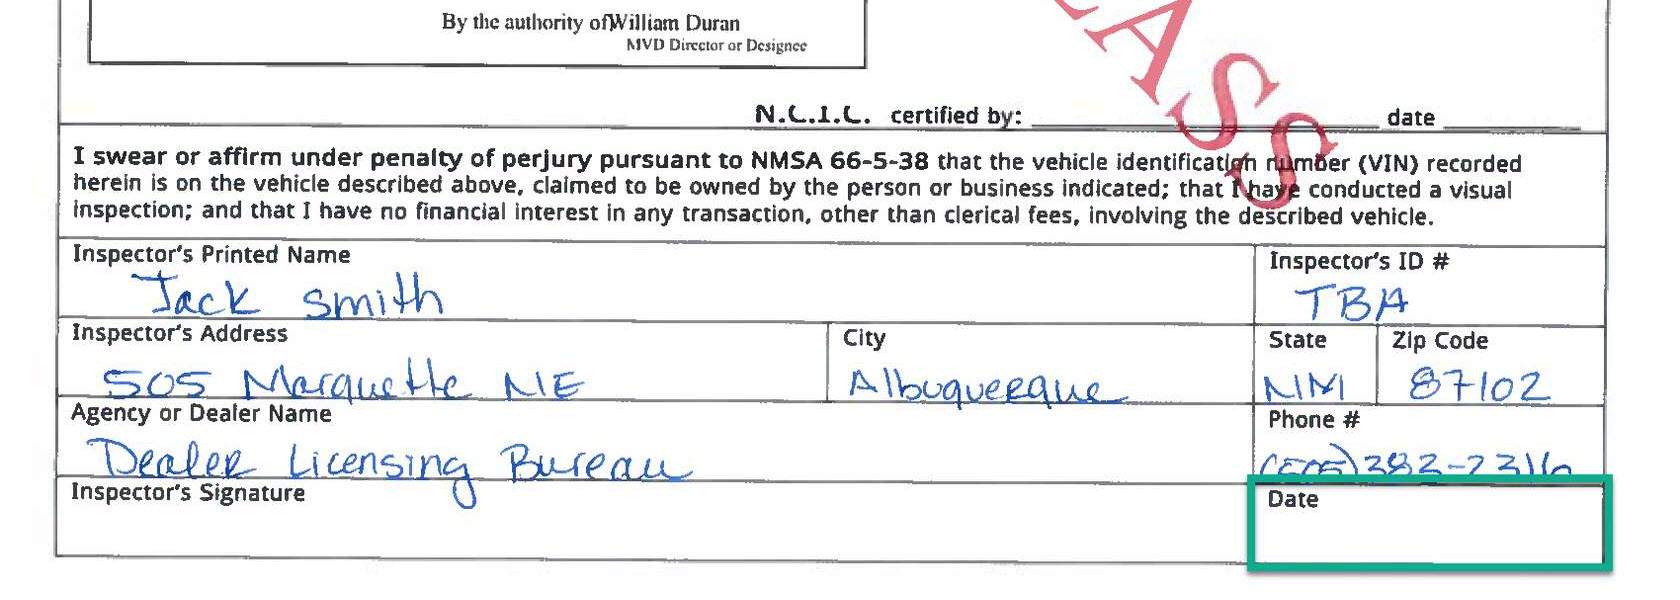 By the authority ofWilliam Duran
MVD Director or Designee
ASS
N.C.I.C. certified by: date
I swear or affirm under penalty of perjury pursuant to NMSA 66-5-38 that the vehicle identification number (VIN) recorded
herein is on the vehicle described above, claimed to be owned by the person or business indicated; that I have conducted a visual
inspection; and that I have no financial interest in any transaction, other than clerical fees, involving the described vehicle.
Inspector's Printed Name Inspector's ID #
Jack Smith TBA
Inspector's Address City State Zip Code
505 Marquette NE Albuquerque NM 87102
Agency or Dealer Name Phone #
Dealer Licensing Bureau
Inspector's Signature Date